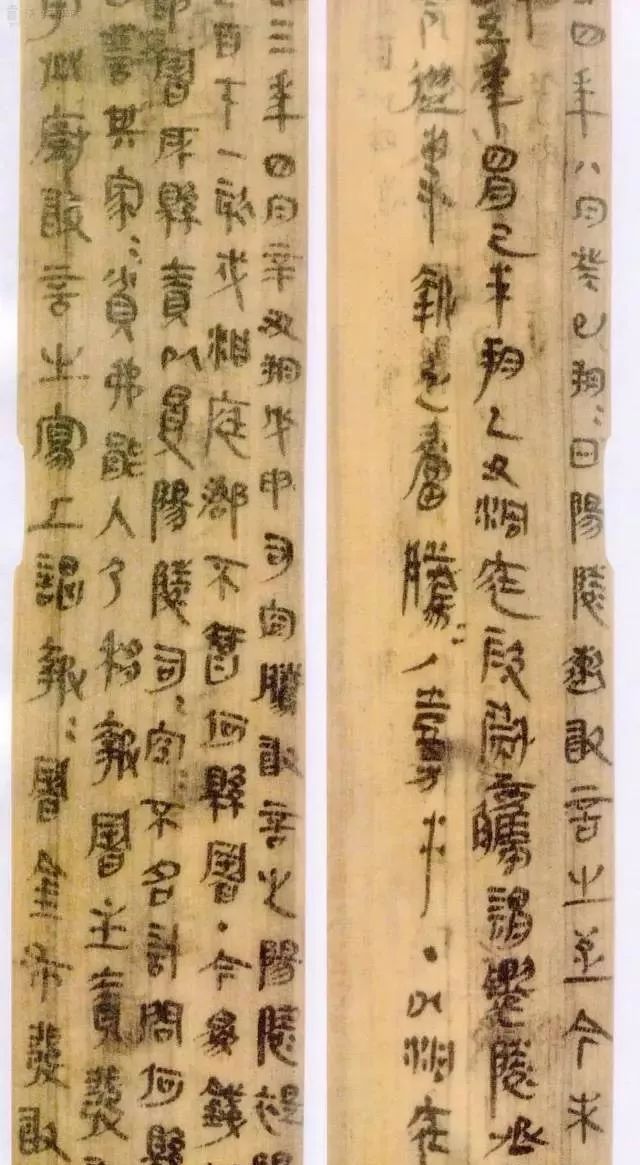 三年四月辛丑朔戊申司空騰敢言之陽陵褆陽
百八十八徐戍洞庭郡不智何縣署·今為錢
署所縣責以受陽陵司=空=不名計問何縣
訾其家=貧弗能入乃移報署主責發
丞廚敢言之寫上謁報=署金布發敢
四年八月癸巳朔=日陽陵遬敢言之至今未
五年四月己未朔乙丑洞庭叚尉觿謂遷陵丞
從事報之當騰=/嘉手·以洞庭